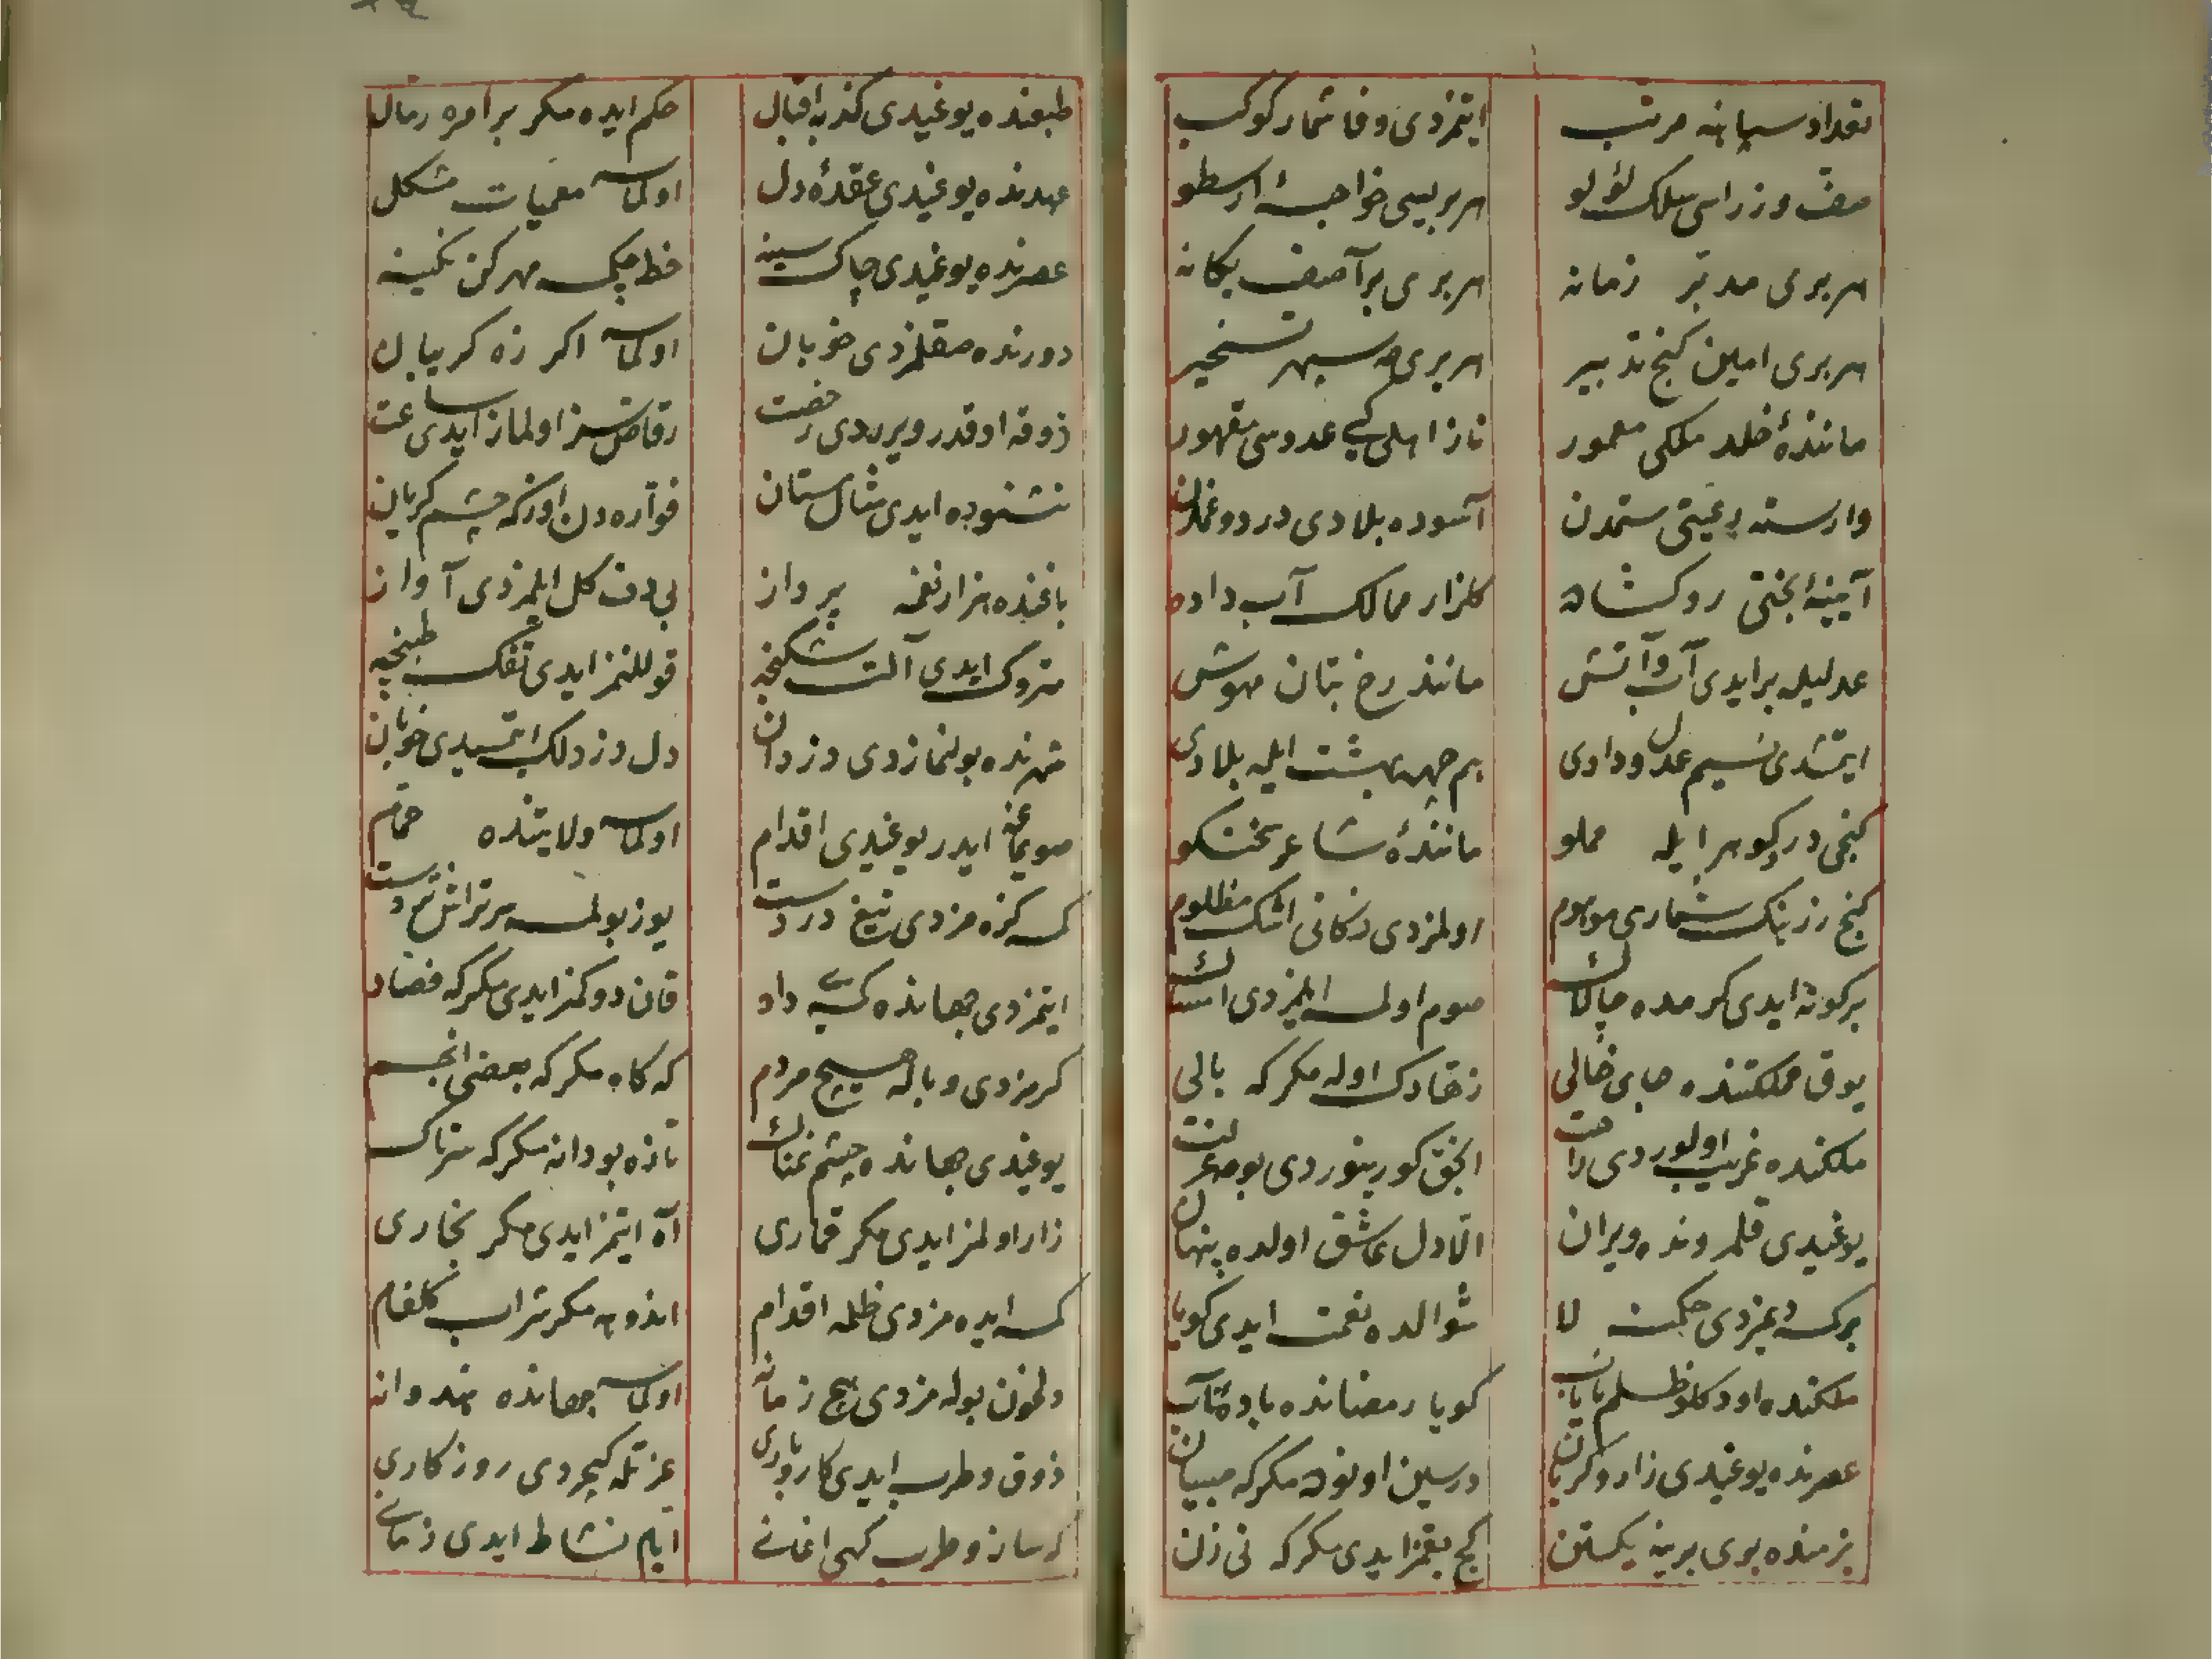 تعداد سپاهنه مرتب ایتمزدی وفا شمار کوکب
صف وزراسی سلک لؤلؤ هر بریسی خواجهٔ ارسطو
هر بری مدبر زمانه هر بری بر آصف یکانه
هر بری امین کنج تدبیر هر بری مه سپهر تسخیر
مانندهٔ خلد ملکی معمور ناز اهلی کبی عدوسی مقهور
وارسته رعیتی ستمدن آسوده بلادی درد و غمدن
آیینهٔ بختی روکشاده کلزار ممالک آب داده
عدلیله بر ایدی آب و آتش مانند رخ بتان مهوش
ایتشدی نسیم عدل و دادی هم چهره بهشت ایله بلادی
کنجی در و کوهر ایله مملو مانندهٔ شاعر سخنکو
کنج زرینک شماری موهوم اولمزدی زکانی اشک مظلوم
بر کونه ایدی کرمده چالاک صوم اولسه ایلمزدی امساک
یوق مملکتنده جای خالی زهادک اوله مکر که بالی
ملکنده غریب اولوردی راحت الحق کورینوردی بو مهر غربت
یوغیدی قلمرونده ویران الا دل عاشق اولده پنهان
بر کسه دیمزدی حکمنه لا شوالده نعمت ایدی کویا
ملکنده اودکلو ظلم نایاب کویا رمضانده بادهٔ ناب
عصرنده یوغیدی زار و کریان درسین اونوده مکر که صبیان
بزمنده بوی برینه یکتن کج بقمز ایدی مکر که نی زن
طبعنده یوغیدی کذبه اقبال حکم ایده مکر بر امره رمال
عهدنده یوغیدی عقدهٔ دل اولماسه معمیات مشکل
عصرنده یوغیدی چاک سینه خط چکمسه مهرکن نکینه
دورنده صقلمزدی خوبان اولماسه اکر زه کریبان
ذوقه اوقدر ویرردی رخصت رقاصسز اولماز ایدی ساعت
نشنوده ایدی مثال ستان فواره دن اوزکه چشم کریان
باغنده هزار نغمه پرداز بی دف کل ایلمزدی آواز
متروک ایدی آلت شکنجه قوللنمز ایدی تفک طبنچه
شهرنده بولنمازدی دزدان دل دزدلک ایتمسیدی خوبان
صویمغه ایدر یوغیدی اقدام اولماسه ولایتنده حمام
کسه کزه مزدی تیغ در دست یوز بولمسه سرتراش سرمست
ایتمزدی جهانده کسیه داد قان دوکمز ایدی مکر که فصاد
کرمزدی وباله هیچ مردم که کاه مکر که بعضی انجم
یوغیدی جهانده چشم نمناک تازه بودانه مکر که سرتاک
زار اولمز ایدی مکر قماری آه ایتمز ایدی مکر بخاری
کسه ایده مزدی ظلمه اقدام اندوهه مکر شراب کلفام
دلخون بوله مزدی هیچ زمانه اولماسه جهانده هندوانه
ذوق و طرب ایدی کار و باری عزتله کچردی روزکاری
که ساز و طرب کهی اغانی ایام نشاط ایدی زمانی